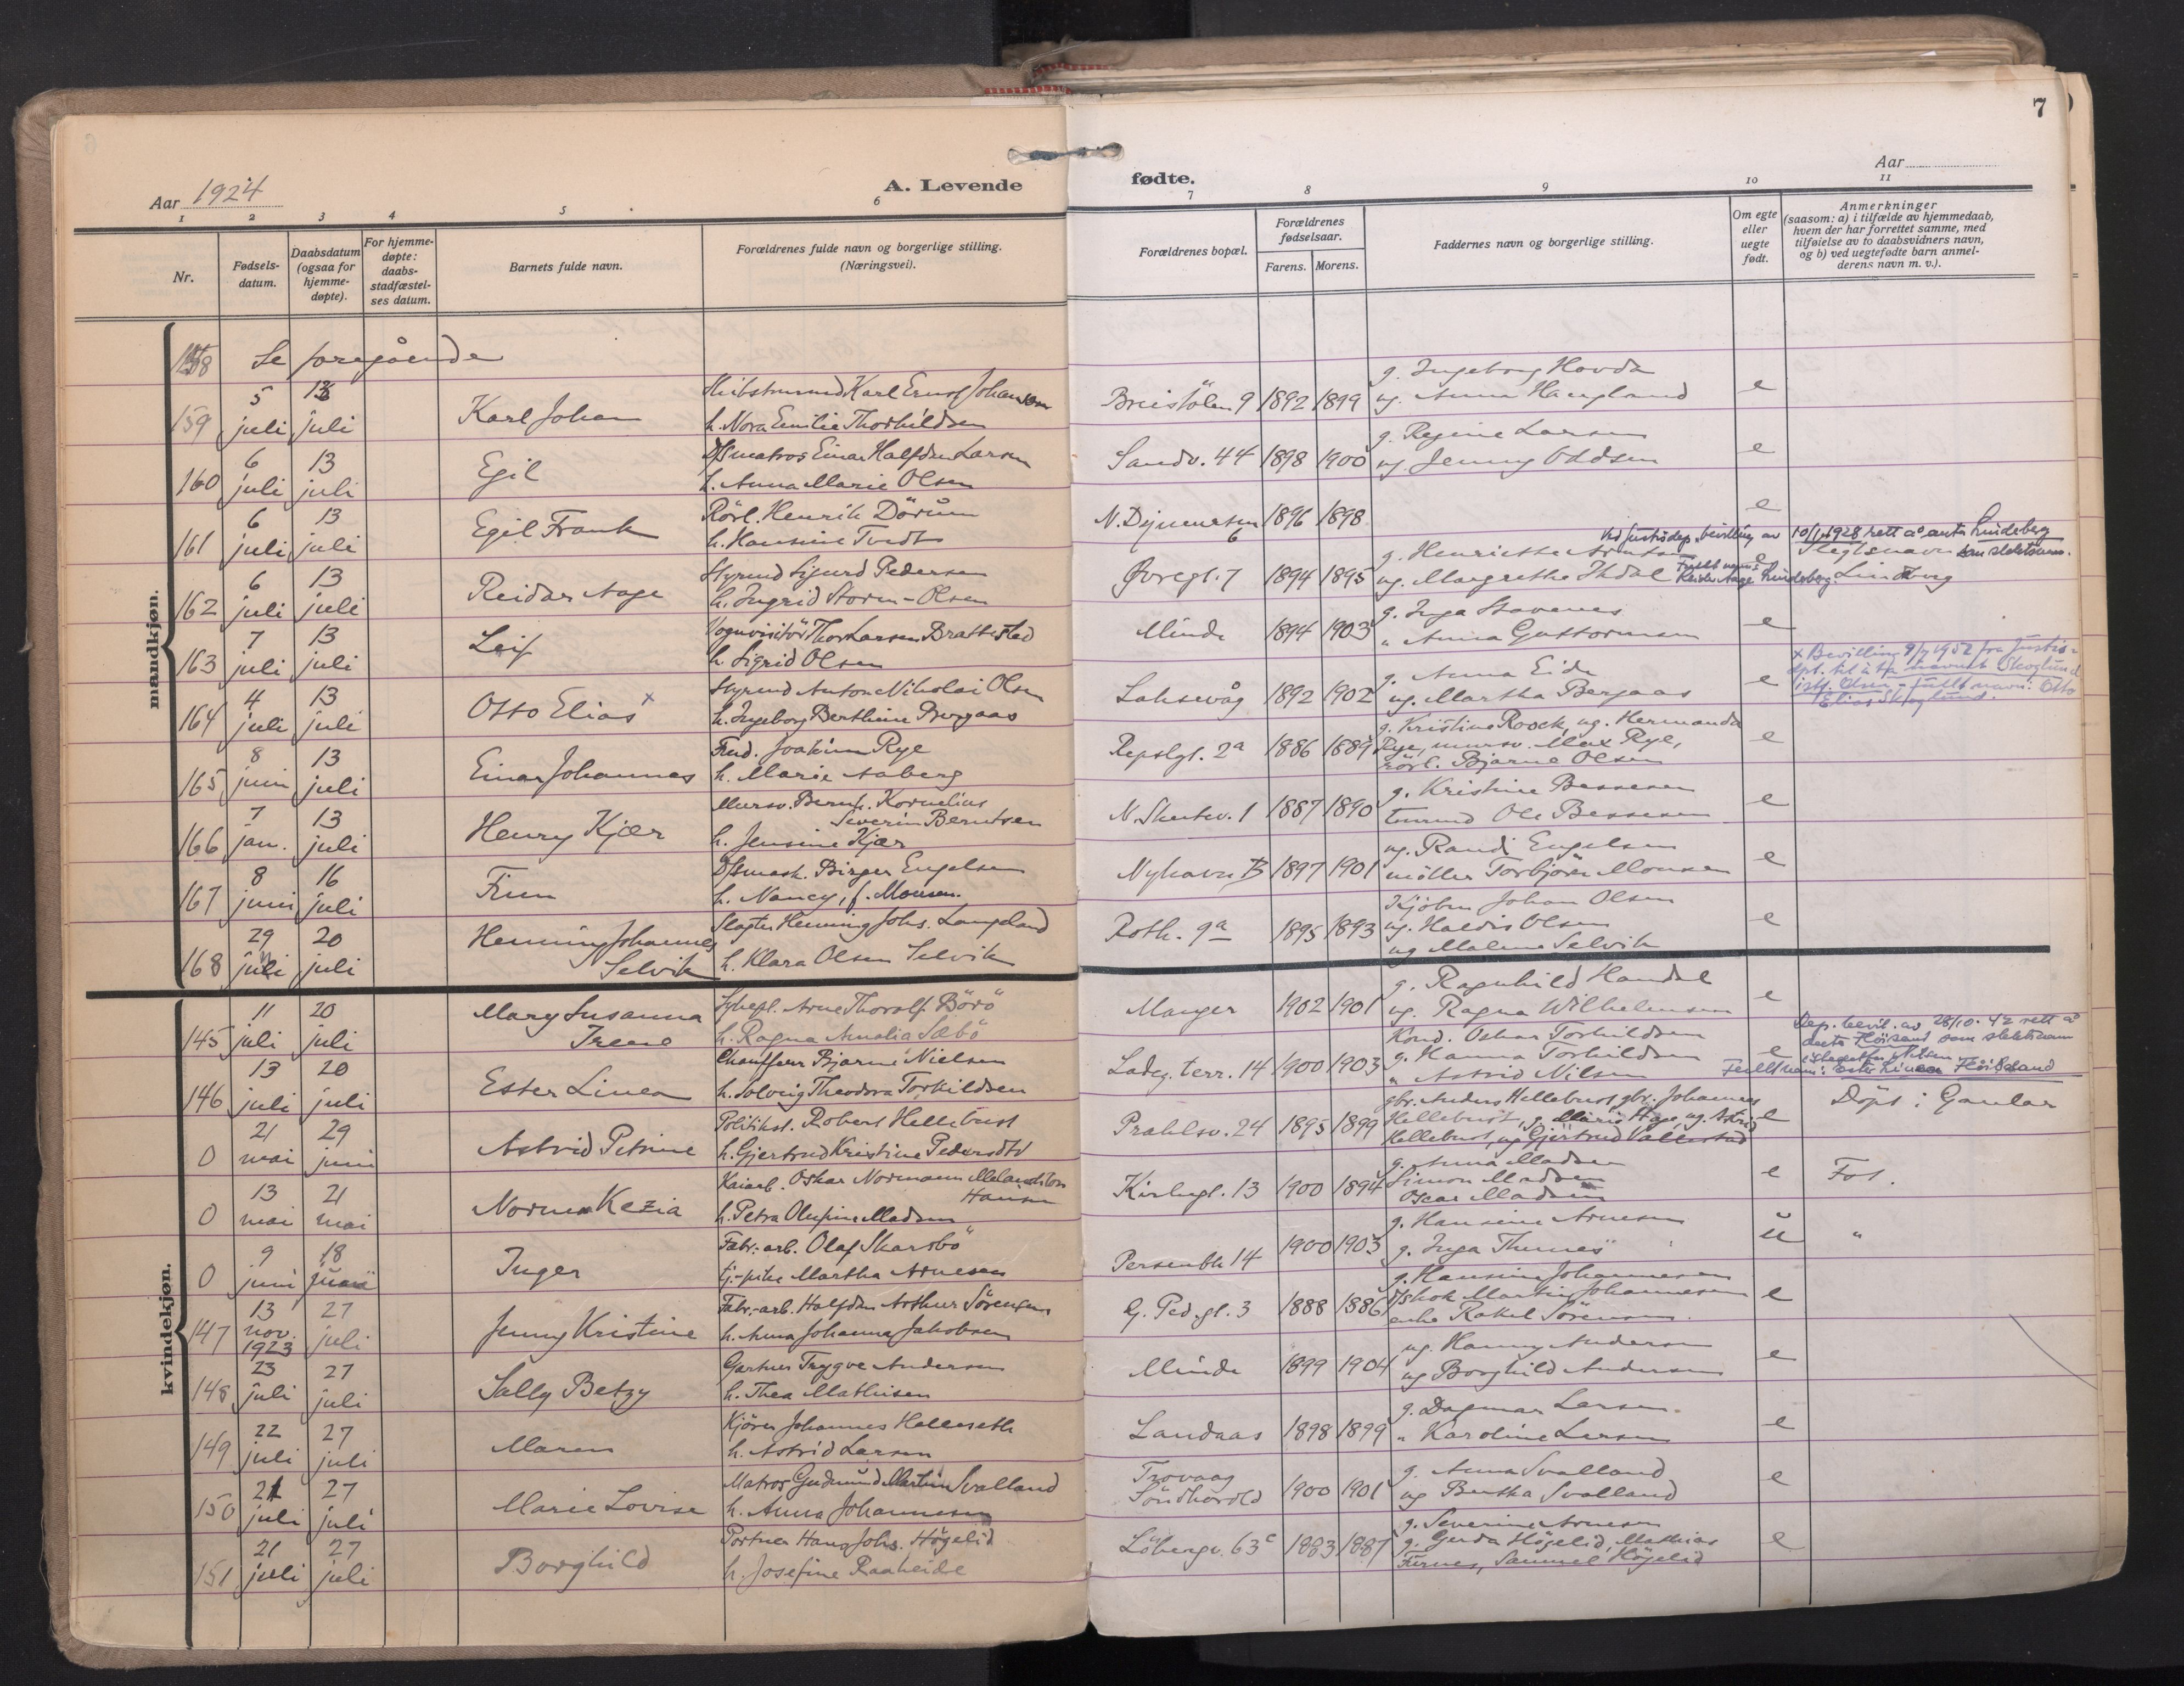 7
Aar 1924
A. Levende
fødte.
Aar
1 2 3 4 5 6 7 8 9 10 11
Nr.
Fødsels-
datum.
Daabsdatum
(ogsaa for
hjemme-
døpte).
For hjemme-
døpte:
daabs-
stadfæstel-
ses datum.
Barnets fulde navn.
Forældrenes fulde navn og borgerlige stilling.
(Næringsvei).
Forældrenes bopæl.
Forældrenes
fødselsaar.
Farens. Morens.
Faddernes navn og borgerlige stilling.
Om egte
eller
uegte
født.
Anmerkninger
(saasom: a) i tilfælde av hjemmedaab,
hvem der har forrettet samme, med
tilføielse av to daabsvidners navn,
og b) ved uegtefødte barn anmel-
derens navn m. v.).
mandkjøn.
158 Se foregående
159 5 juli 13 juli Karl Johan
Karl Ernst Johansen
h. Nora Emilie Thorkildsen
Breistölen 9 1892 1899
g. Ingeborg Hovda
ug. Anna Haugland
e
160 6 juli 13 juli Egil
D/S matros Einar Halfdan Larsen
h. Anna Marie Olsen
Sandv. 44 1898 1900
g. Regine Larsen
ug. Jenny Oldsen
e
161 6 juli 13 juli Egil Frank
Rörl. Henrik Dörum
h. Hansine Tvedt
6 1896 1898
e
162 6 juli 13 juli Reidar Aage
Styrmd Sigurd Pedersen
h. Ingrid Storm-Olsen
Øvregt. 7 1894 1895
g. Henriette
ug. Margrethe Ihdal
Ved justisdep. bevilling av 10/1 1928 rett a anta Lindeberg
som slektsnavn.
Fullt navn:
Reidar Aage Lindeberg.
163 7 juli 13 juli Leif
Vognvisitör Thor Larsen Brattestad
h. Sigrid Olsen
Minde 1894 1903
g. Inga Stavenes
" Anna Guttormsen
e
164 4 juli 13 juli Otto Elias x
Styrmd Anton Nikolai Olsen
h. Ingeborg Berthine Bergaas
Laksevåg 1892 1902
g. Anna Eide
ug. Martha Bergaas
e
x Bevilling 9/7 1952 fra Justis-
dpt. til å ta navnet Skoglund
istf. Olsen - fullt navn: Otto
Elias Skoglund.
165 8 juni 13 juli Einar Johannes
Joakim Rye
h. Marie Aaberg
Repslgt. 2a 1886 1889
g. Kristine Roock, ug. Hermanda
Rye, mursv. Max Rye,
rörl. Bjarne Olsen
e
166 7 jan. 13 juli Henry Kjær
Mursv. Bernh. Kornelius
Severin Berntsen
h. Jensine Kjær
1 1887 1890
g. Kristine Bessesen
Ole Bessesen
e
167 8 juni 16 juli Finn
D/S mask. Birger Engelsen
h. Nancy, f. Monsen.
Nyhavn B 1897 1901
ug. Randi Engelsen
möller Torbjörn Monsen
e
168 29 juli 20 juli Henning Johannes
Selvik
Slagter Henning Johs. Langeland
h. Klara Olsen Selvik
Roth. 9a 1895 1893
Kjöbm Johan Olsen
ug. Haldis Olsen
ug Malene Selvik
e
kvindekjøn.
145 11 juli 20 juli Mary Susanna
Irene
Arne Thoralf Börö
h. Ragna Amalia Sæbö
Manger 1902 1901
g. Ragnhild Handal
ug. Ragna Wilhelmsen
e
146 13 juli 20 juli Ester Linea
Chauffeur Bjarne Nielsen
h. Solveig Theodora Torkildsen
Ladeg. terr. 14 1900 1903
Kond. Oskar Torkildsen
g. Hanna Torkildsen
" Astrid Nilsen
e
Dep. bevil. av 28/10. 42 rett a
anta Höisand som slektsnavn
Fullt navn: Ester Linea Höisand
0 21 mai 29 juni Astrid Petrine
Politikst. Robert Hellebust
h. Gjertrud Kristine Pedersdtr
Prahlsv. 24 1895 1899
gbr. Anders Hellebust, gbr. Johannes
Hellebust, g. Marie Hage, ug. Astrid
Hellebust, ug Gjertrud Vallestad
e
Döpt i Gaular
0 13 mai 21 mai Norma Kezia
Kaiarb. Oskar Normann Melankton
Hansen
h. Petra Olufine Madsen
Kirkegt. 13 1900 1894
g. Anna Madsen
Simon Madsen
Oscar Madsen
e
Fos.
0 9 juni 18 Inger
Fabr.-arb. Olaf Skarsbö
tj.-pike Martha Arnesen
14 1900 1903
g. Hansine Arnesen
g. Inga Thunes
u
"
147 13 nov. 1923 27 juli Jenny Kristine
Fabr.-arb. Halfdan Arthur Sörensen
h. Anna Johanna Jakobsen
G. Ped. gt. 3 1888 1886
g. Hansine Johannesen
D/S kok Martin Johannesen
enke Rakel Sörensen.
e
148 23 juli 27 juli Sally Betzy
Gartner Trygve Andersen
h. Thea Mathisen
Minde 1899 1904
ug. Hanny Andersen
ug Borghild Andersen
e
149 22 juli 27 juli Maren
Kjörer Johannes Hellereth
h. Astrid Larsen
Landaas 1898 1899
g. Dagmar Larsen
" Karoline Larsen
e
150 21 juli 27 juli Marie Lovise
Matros Gudmund Martin Svalland
h. Anna Johannesen
Trovaag
Söndhordld 1900 1901
g. Anna Svalland
ug Bertha Svalland
e
151 21 juli 27 juli Borghild
Portner Hans Johs. Högelid
h. Josefine Raaheide
Löbergsv. 63c 1883 1887
g. Severine Arnesen
g. Gerda Högelid, Mathias
Furnes, Sammel Högelid
e